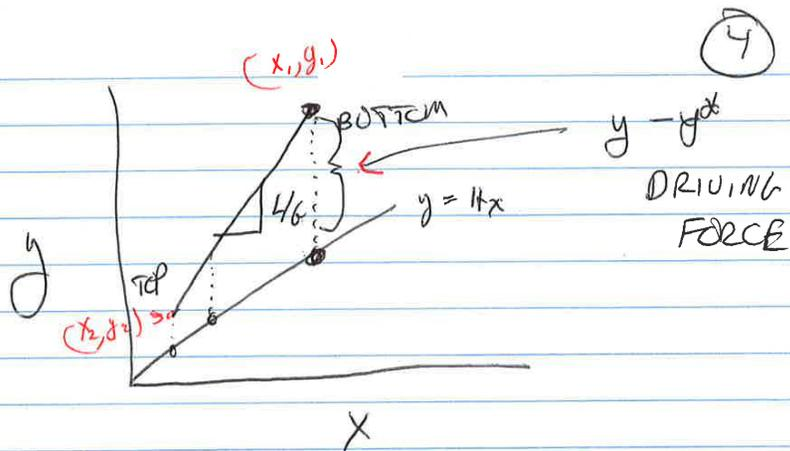 4
(x₁, y₁)
BOTTOM
y - y*
DRIVING
FORCE
L/G
y = Hx
y
TOP
(x₂, y₂)
X